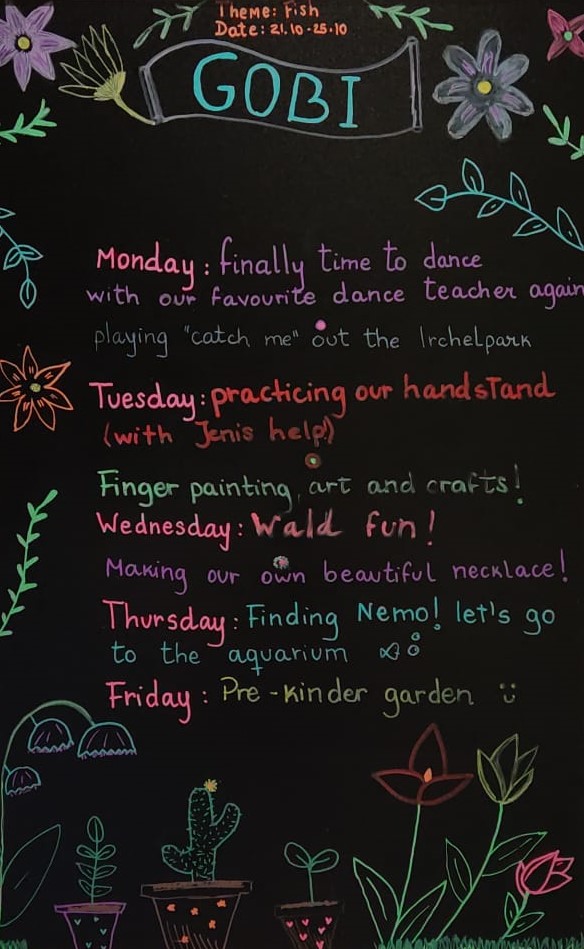 Theme: Fish
Date: 21.10-25.10
GOBI
Monday: finally time to dance
with our favourite dance teacher again
playing "catch me" out the Irchelpark
Tuesday: practicing our handstand
(with Jenis help!)
Finger painting, art and crafts!
Wednesday: Wald fun!
Making our own beautiful necklace!
Thursday: Finding Nemo! let's go
to the aquarium
Friday: Pre-kinder garden